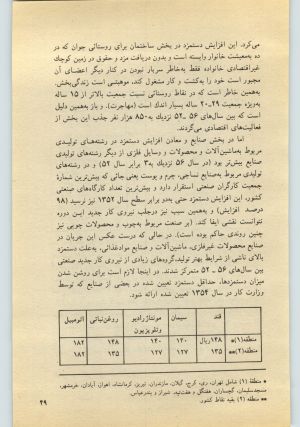 می‌کرد. این افزایش دستمزد در بخش ساختمان برای روستائی جوان که در
ده به‌معیشت خانوار وابسته است و بدون دریافت مزد و حقوق در زمین کوچک
غیراقتصادی خانواده فقط به‌خاطر سربار نبودن در کنار دیگر اعضای آن
مجبور است خود را به‌کشت و کار مشغول کند، موهبتی است زندگی‌بخش.
به‌همین خاطر است که در نقاط روستائی نسبت جمعیت بالاتر از ۱۵ ساله
به‌ویژه جمعیت ۲۹ــ۲۰ ساله بسیار اندك است (مهاجرت). و باز به‌همین دلیل
است که بین سال‌های ۵۶ ــ ۵۲ نزدیك به‌۸۵۰ هزار نفر جذب این بخش از
فعالیت‌های اقتصادی می‌گردند.
اما در بخش صنایع و معادن افزایش دستمزد در رشته‌های تولیدی
مربوط به‌ماشین‌آلات و محصولات و وسایل فلزی از دیگر رشته‌های تولیدی
صنایع بیش‌تر بود (در سال ۵۶ نزدیك به‌۳ برابر سال ۵۲) و در رشته‌های
تولیدی مربوط به‌صنایع نساجی، چرم و پوست یعنی جائی که بیش‌ترین شمارهٔ
جمعیت کارگران صنعتی استقرار دارد و بیش‌ترین تعداد کارگاه‌های صنعتی
کشور را داراست، افزایش دستمزد حتی به‌دو برابر سطح سال ۱۳۵۲ نیز نرسید (۹۸
درصد افزایش) و به‌همین سبب نیز درجلب نیروی کار جدید این دوره
نتوانست نقشی ایفا کند. (بر صنعت مربوط به‌چوب و محصولات چوبی نیز
چنین روندی حاکم بوده است). در حالی که درست عکس این جریان در
صنایع محصولات غیرفلزی، ماشین‌آلات و صنایع موادغذائی، به‌علت دستمزد
بالای ناشی از شرایط بهتر تولید، گروه‌های زیادی از نیروی کار جدید صنعتی
بین سال‌های ۵۶ ــ ۵۲ متمرکز شدند. در اینجا لازم است برای روشن شدن
میزان دستمزدها، حداقل دستمزد تعیین شده در بعضی از صنایع که توسط
وزارت کار در سال ۱۳۵۴ تعیین شده ارائه شود.
قند سیمان مونتاژ رادیو وتلویزیون روغن‌نباتی اتومبیل
منطقه (۱)* ۱۴۸ریال ۱۴۰ ۱۴۰ ۱۴۸ ۱۸۲
منطقه (۲)** ۱۳۵ ۱۲۷ ۱۲۷ ۱۳۵ ۱۸۲
* منطقه (۱) شامل تهران، ری، کرج، گیلان، مازندران، تبریز، کرمانشاه، اهواز، آبادان، خرمشهر،
مسجدسلیمان، گچساران، هفتگل و هفت‌تپه، شیراز و بندرعباس.
** منطقه (۲) بقیه نقاط کشور.
۴۹